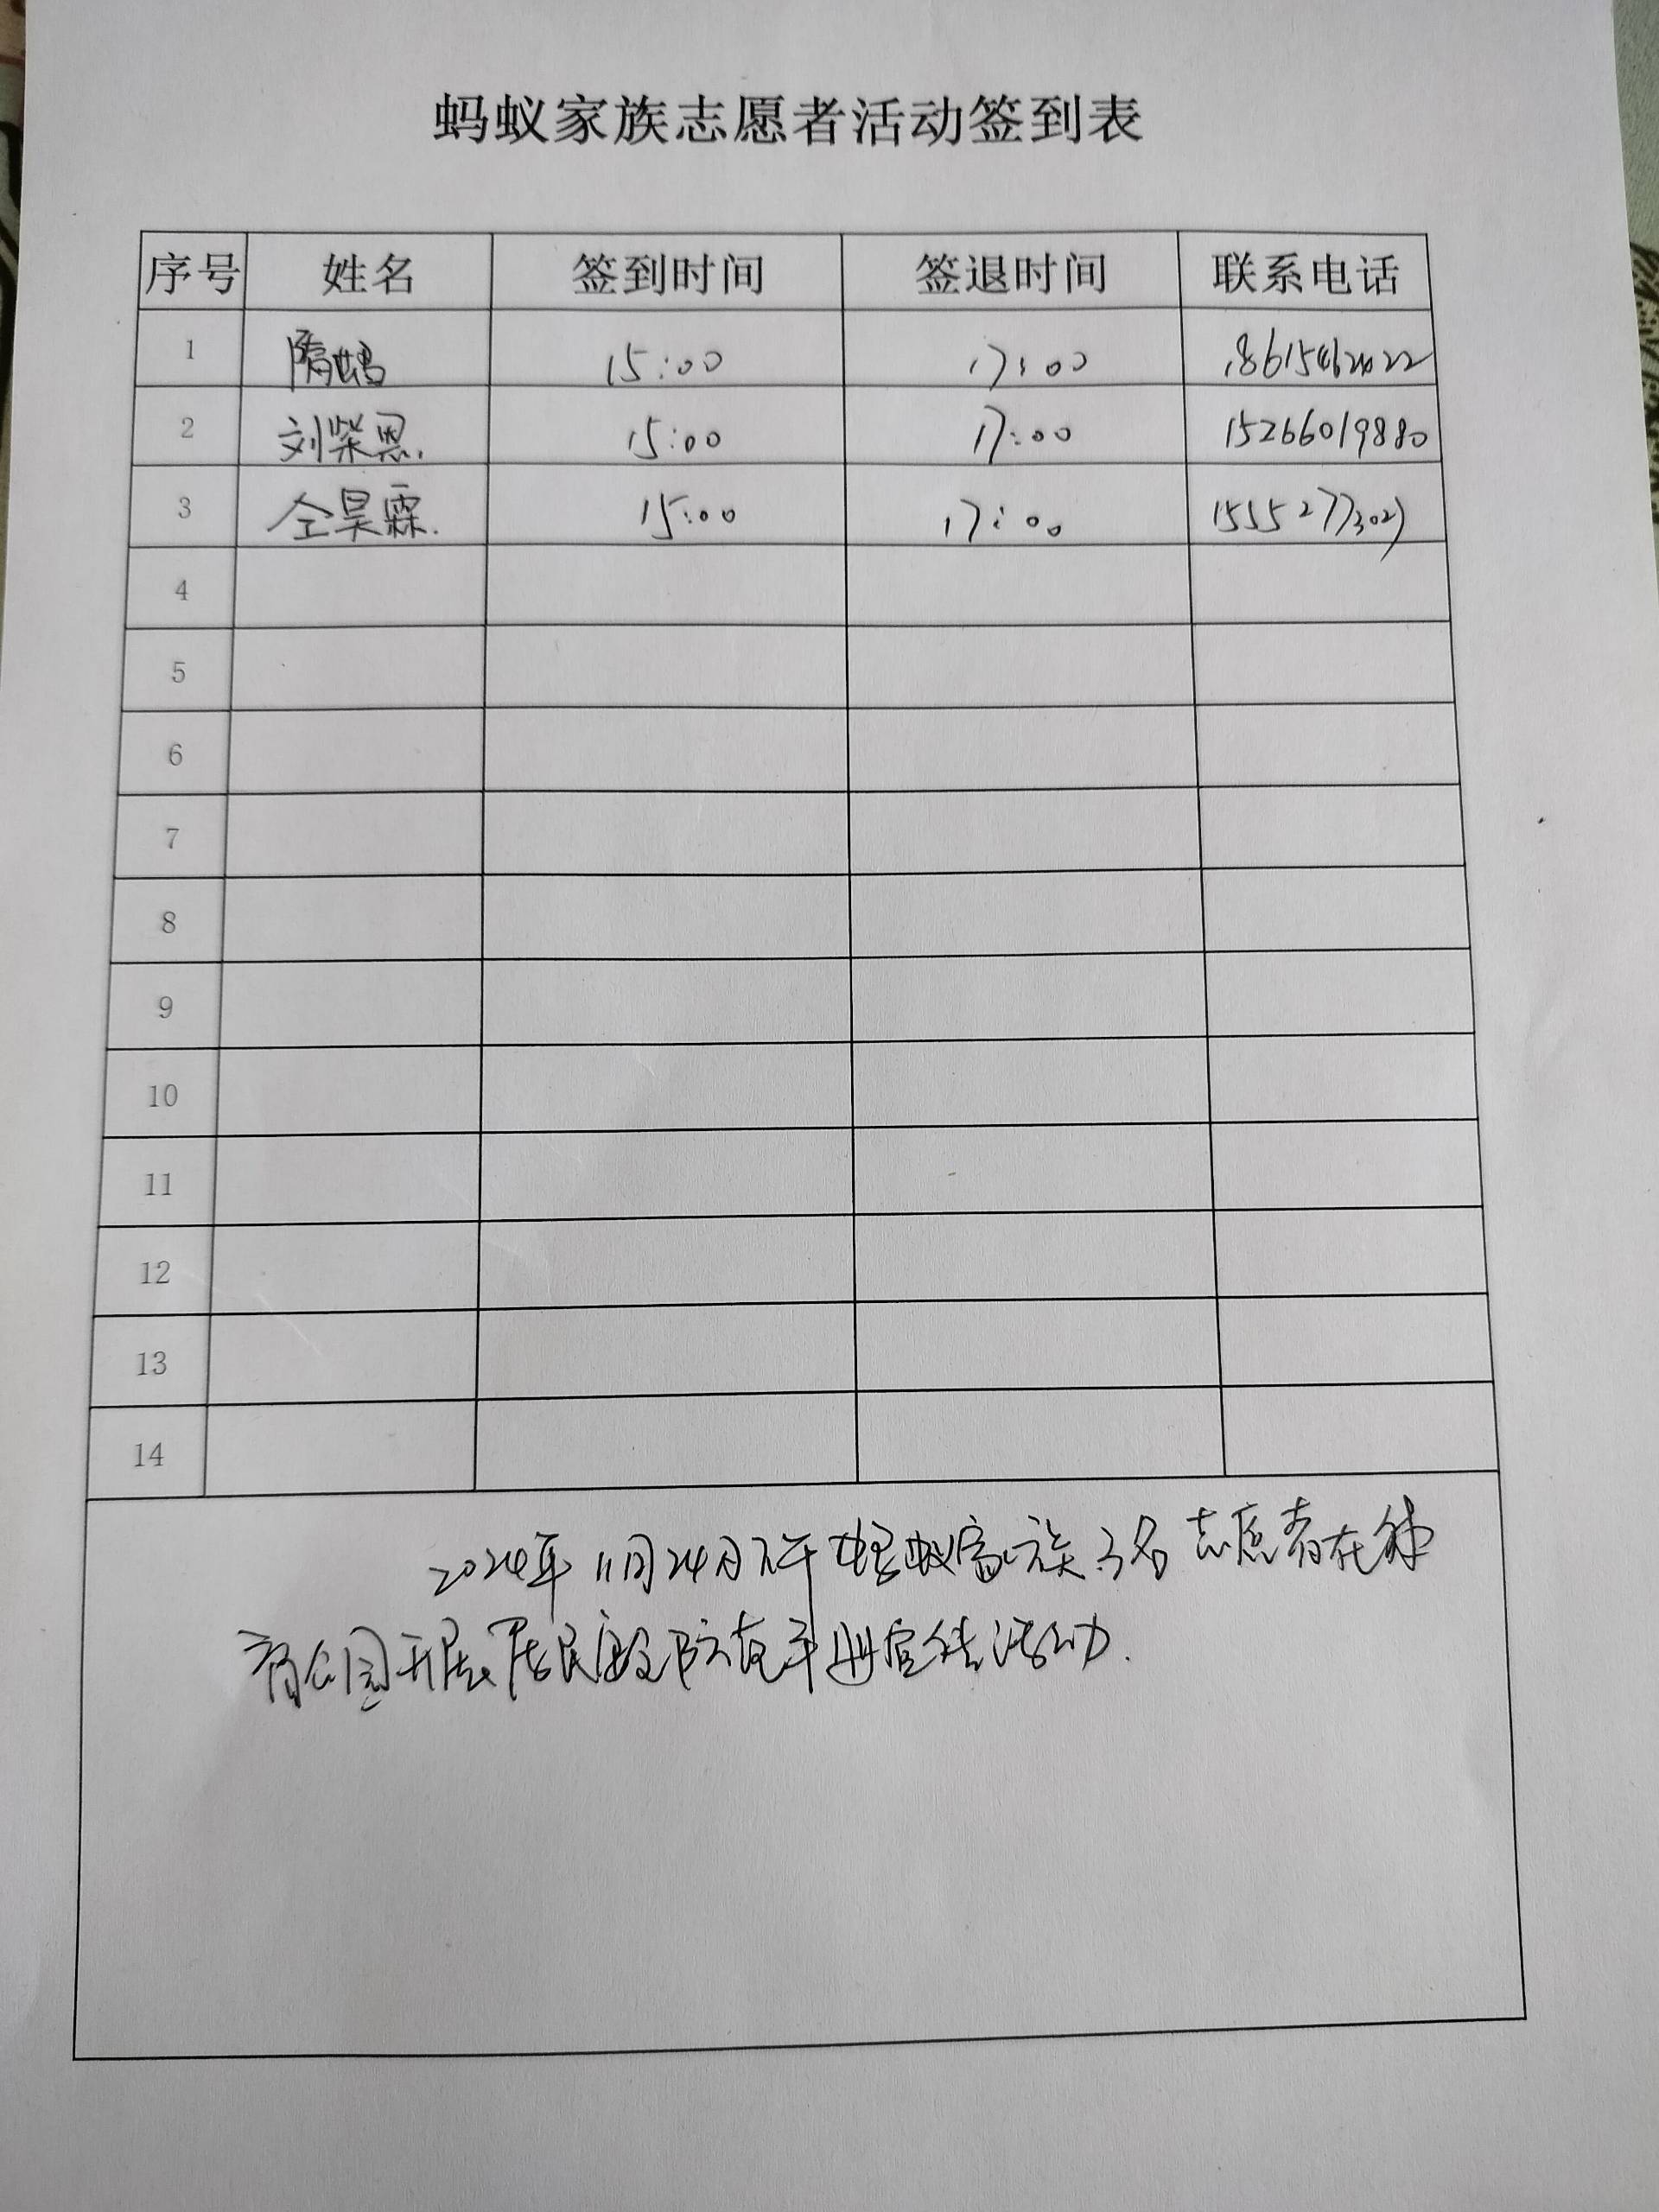 蚂蚁家族志愿者活动签到表
序号 姓名 签到时间 签退时间 联系电话
1 15:00 17:00
2 刘柴恩. 15:00 17:00 15266019880
3 仝昊霖. 15:00 17:00 15552773027
4
5
6
7
8
9
10
11
12
13
14
2024年11月24日下午蚂蚁家族3名志愿者在体
育公园开展居民消防安手册宣传活动.